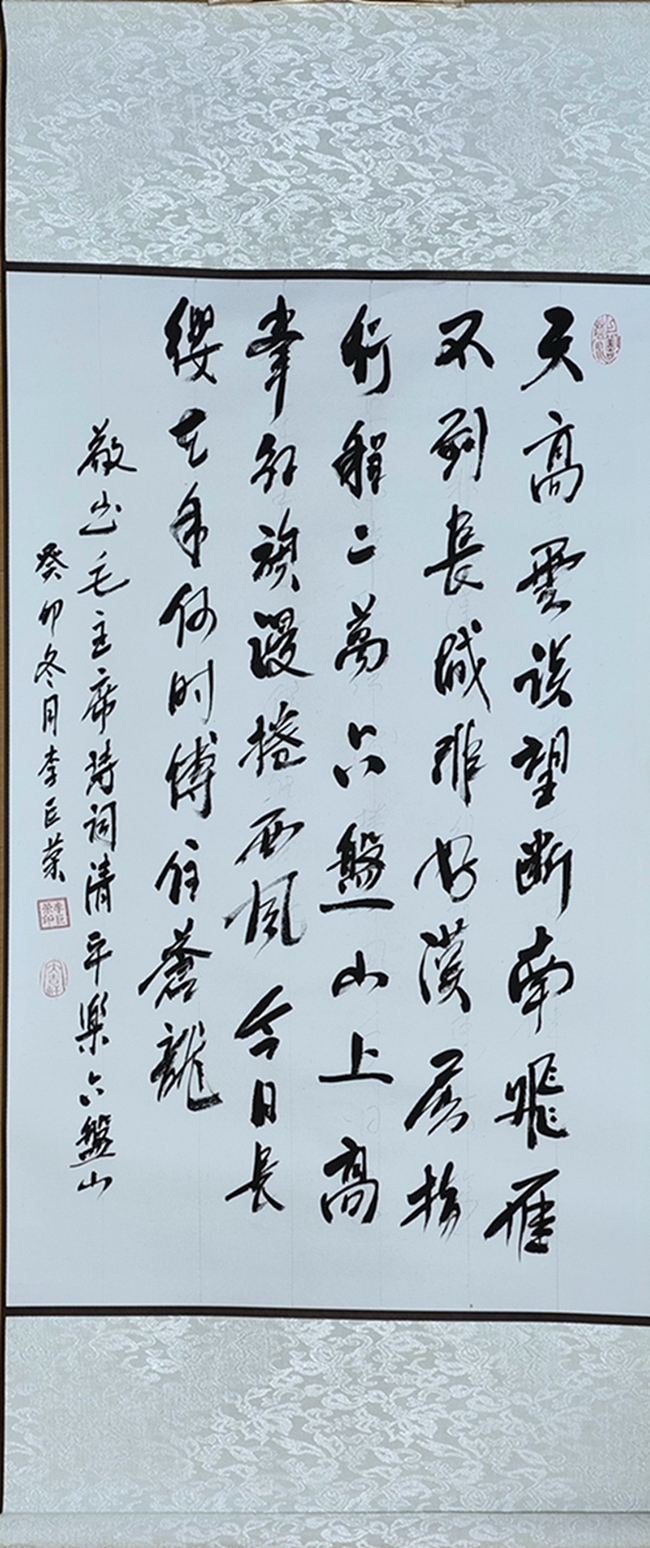 天高雲淡望斷南飛雁
不到長城非好漢屈指
行程二萬六盤山上高
峯红旗漫捲西風今日長
缨在手何时缚住蒼龍
敬书毛主席詩词清平樂六盤山
癸卯冬月李巨業